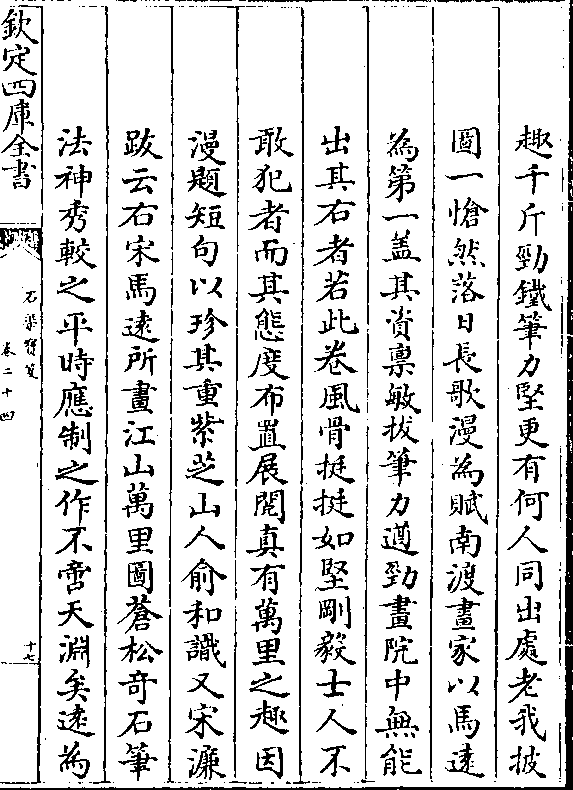 趣千斤勁鐵筆力堅更有何人同出處老我披
圖一愴然落日長歌漫為賦南渡畫家以馬逺
為第一盖其資禀敏拔筆力遒勁畫院中無能
出其右者若此卷風骨挺挺如堅剛毅士人不
敢犯者而其態度布置展閱真有萬里之趣因
漫題短句以珍其重紫芝山人俞和識又宋濂
跋云右宋馬逺所畫江山萬里圖蒼松奇石筆
法神秀較之平時應制之作不啻天淵矣逺為
欽定四庫全書
石渠寶笈
卷二十四
十七